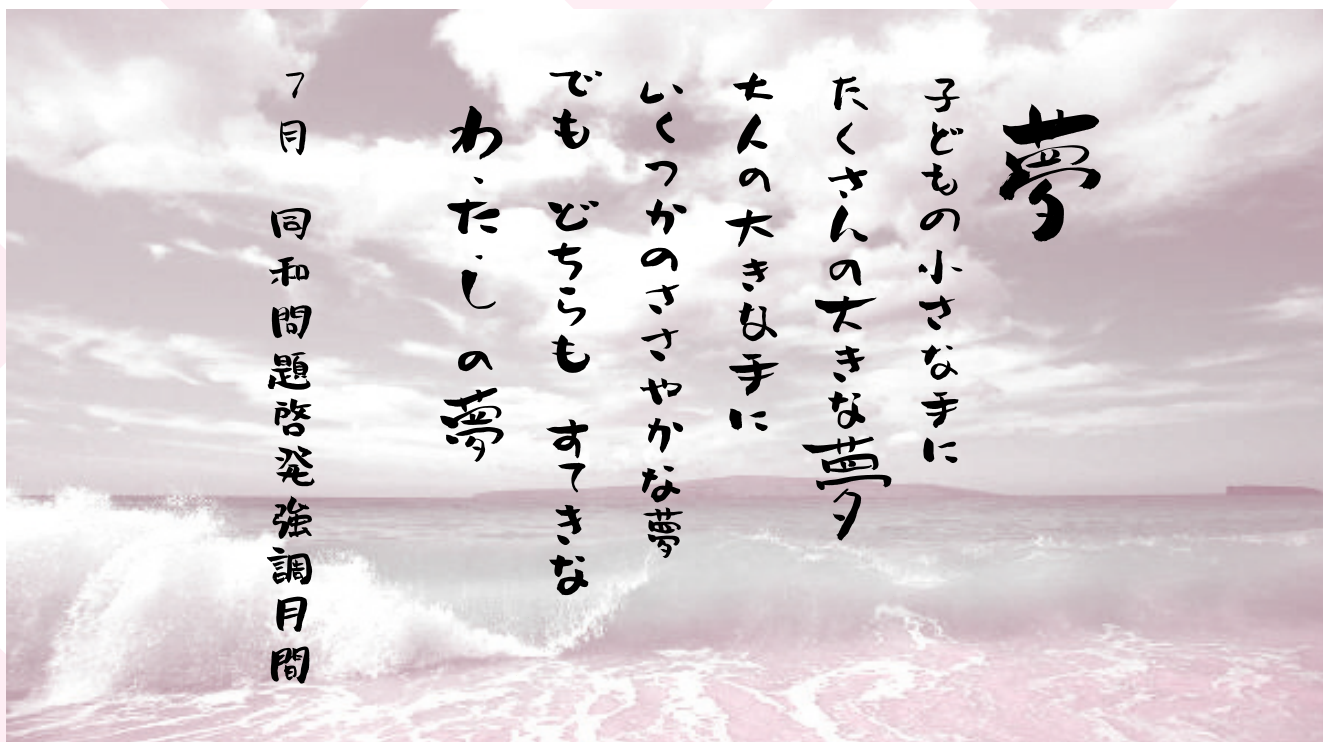 夢
子どもの小さな手に
たくさんの大きな夢
大人の大きな手に
いくつかのささやかな夢
でも どちらも すてきな
わたしの夢
7月 同和問題啓発強調月間